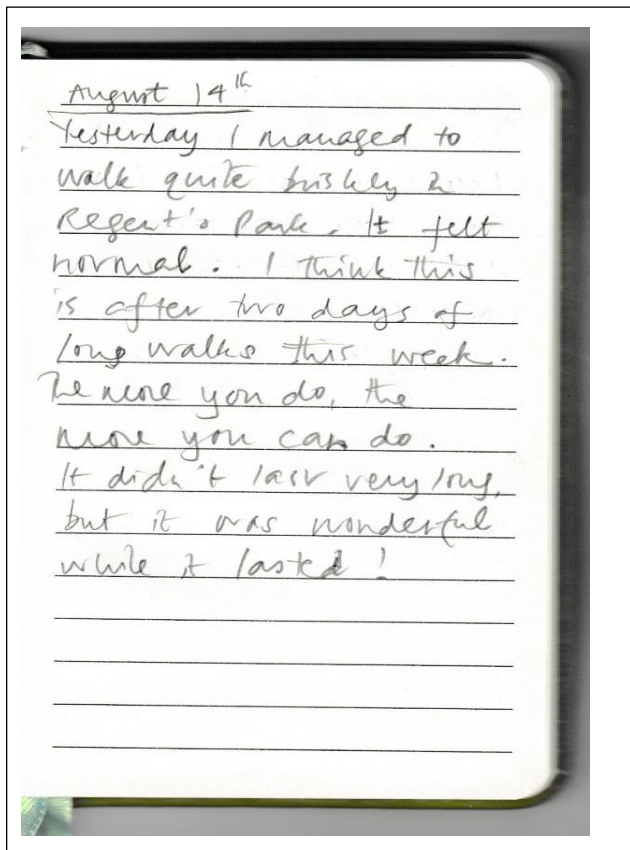 August 14th
Yesterday I managed to
walk quite briskly in
Regent's Park. It felt
normal. I think this
is after two days of
long walks this week.
The more you do, the
more you can do.
It didn't last very long,
but it was wonderful
while it lasted!